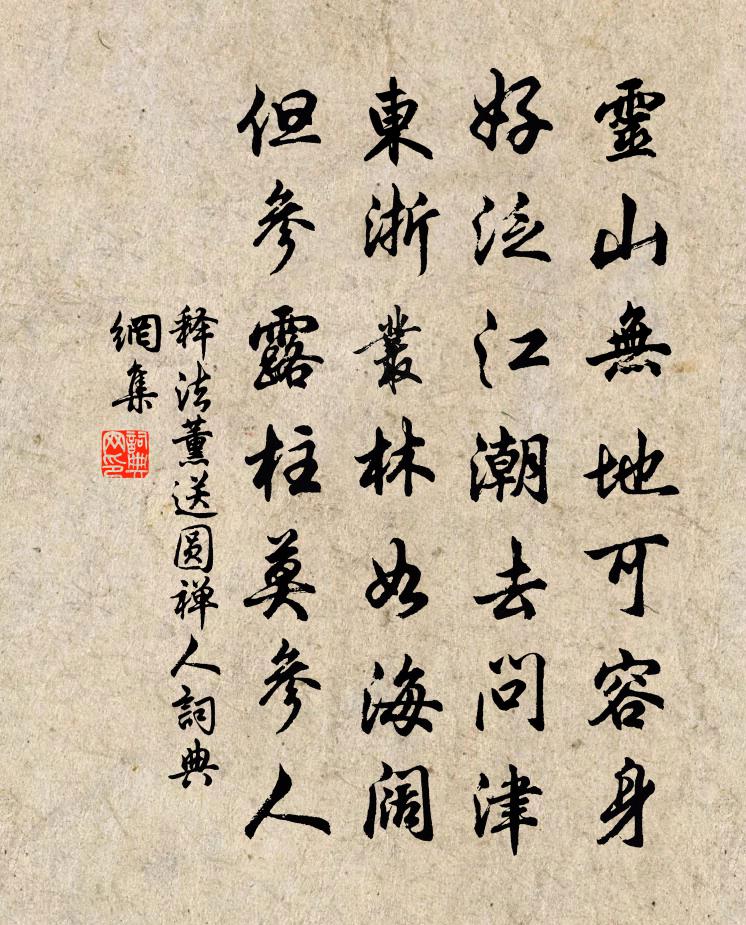 靈山無地可容身
好泛江潮去問津
東浙叢林如海闊
但參露柱莫參人
释法薰送圆禅人詞典
網集
詞典网印